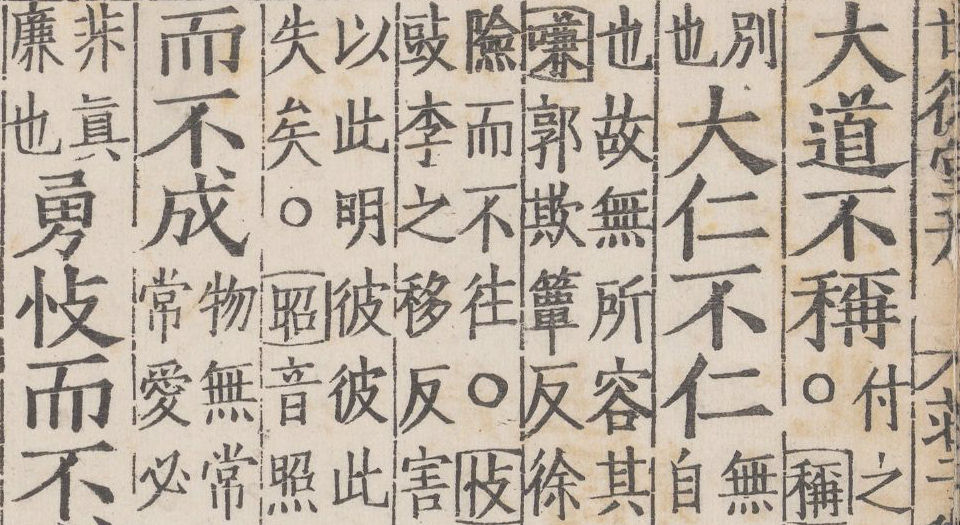 大道不稱
付之
○稱
別
也
大仁不仁
無
自
也故無所容其
嗛郭欺簟反徐
險而不徃○忮
豉李之移反害
以此明彼彼此
失矣○昭音照
而不成
物無常
常愛必
非眞
廉也
勇忮而不